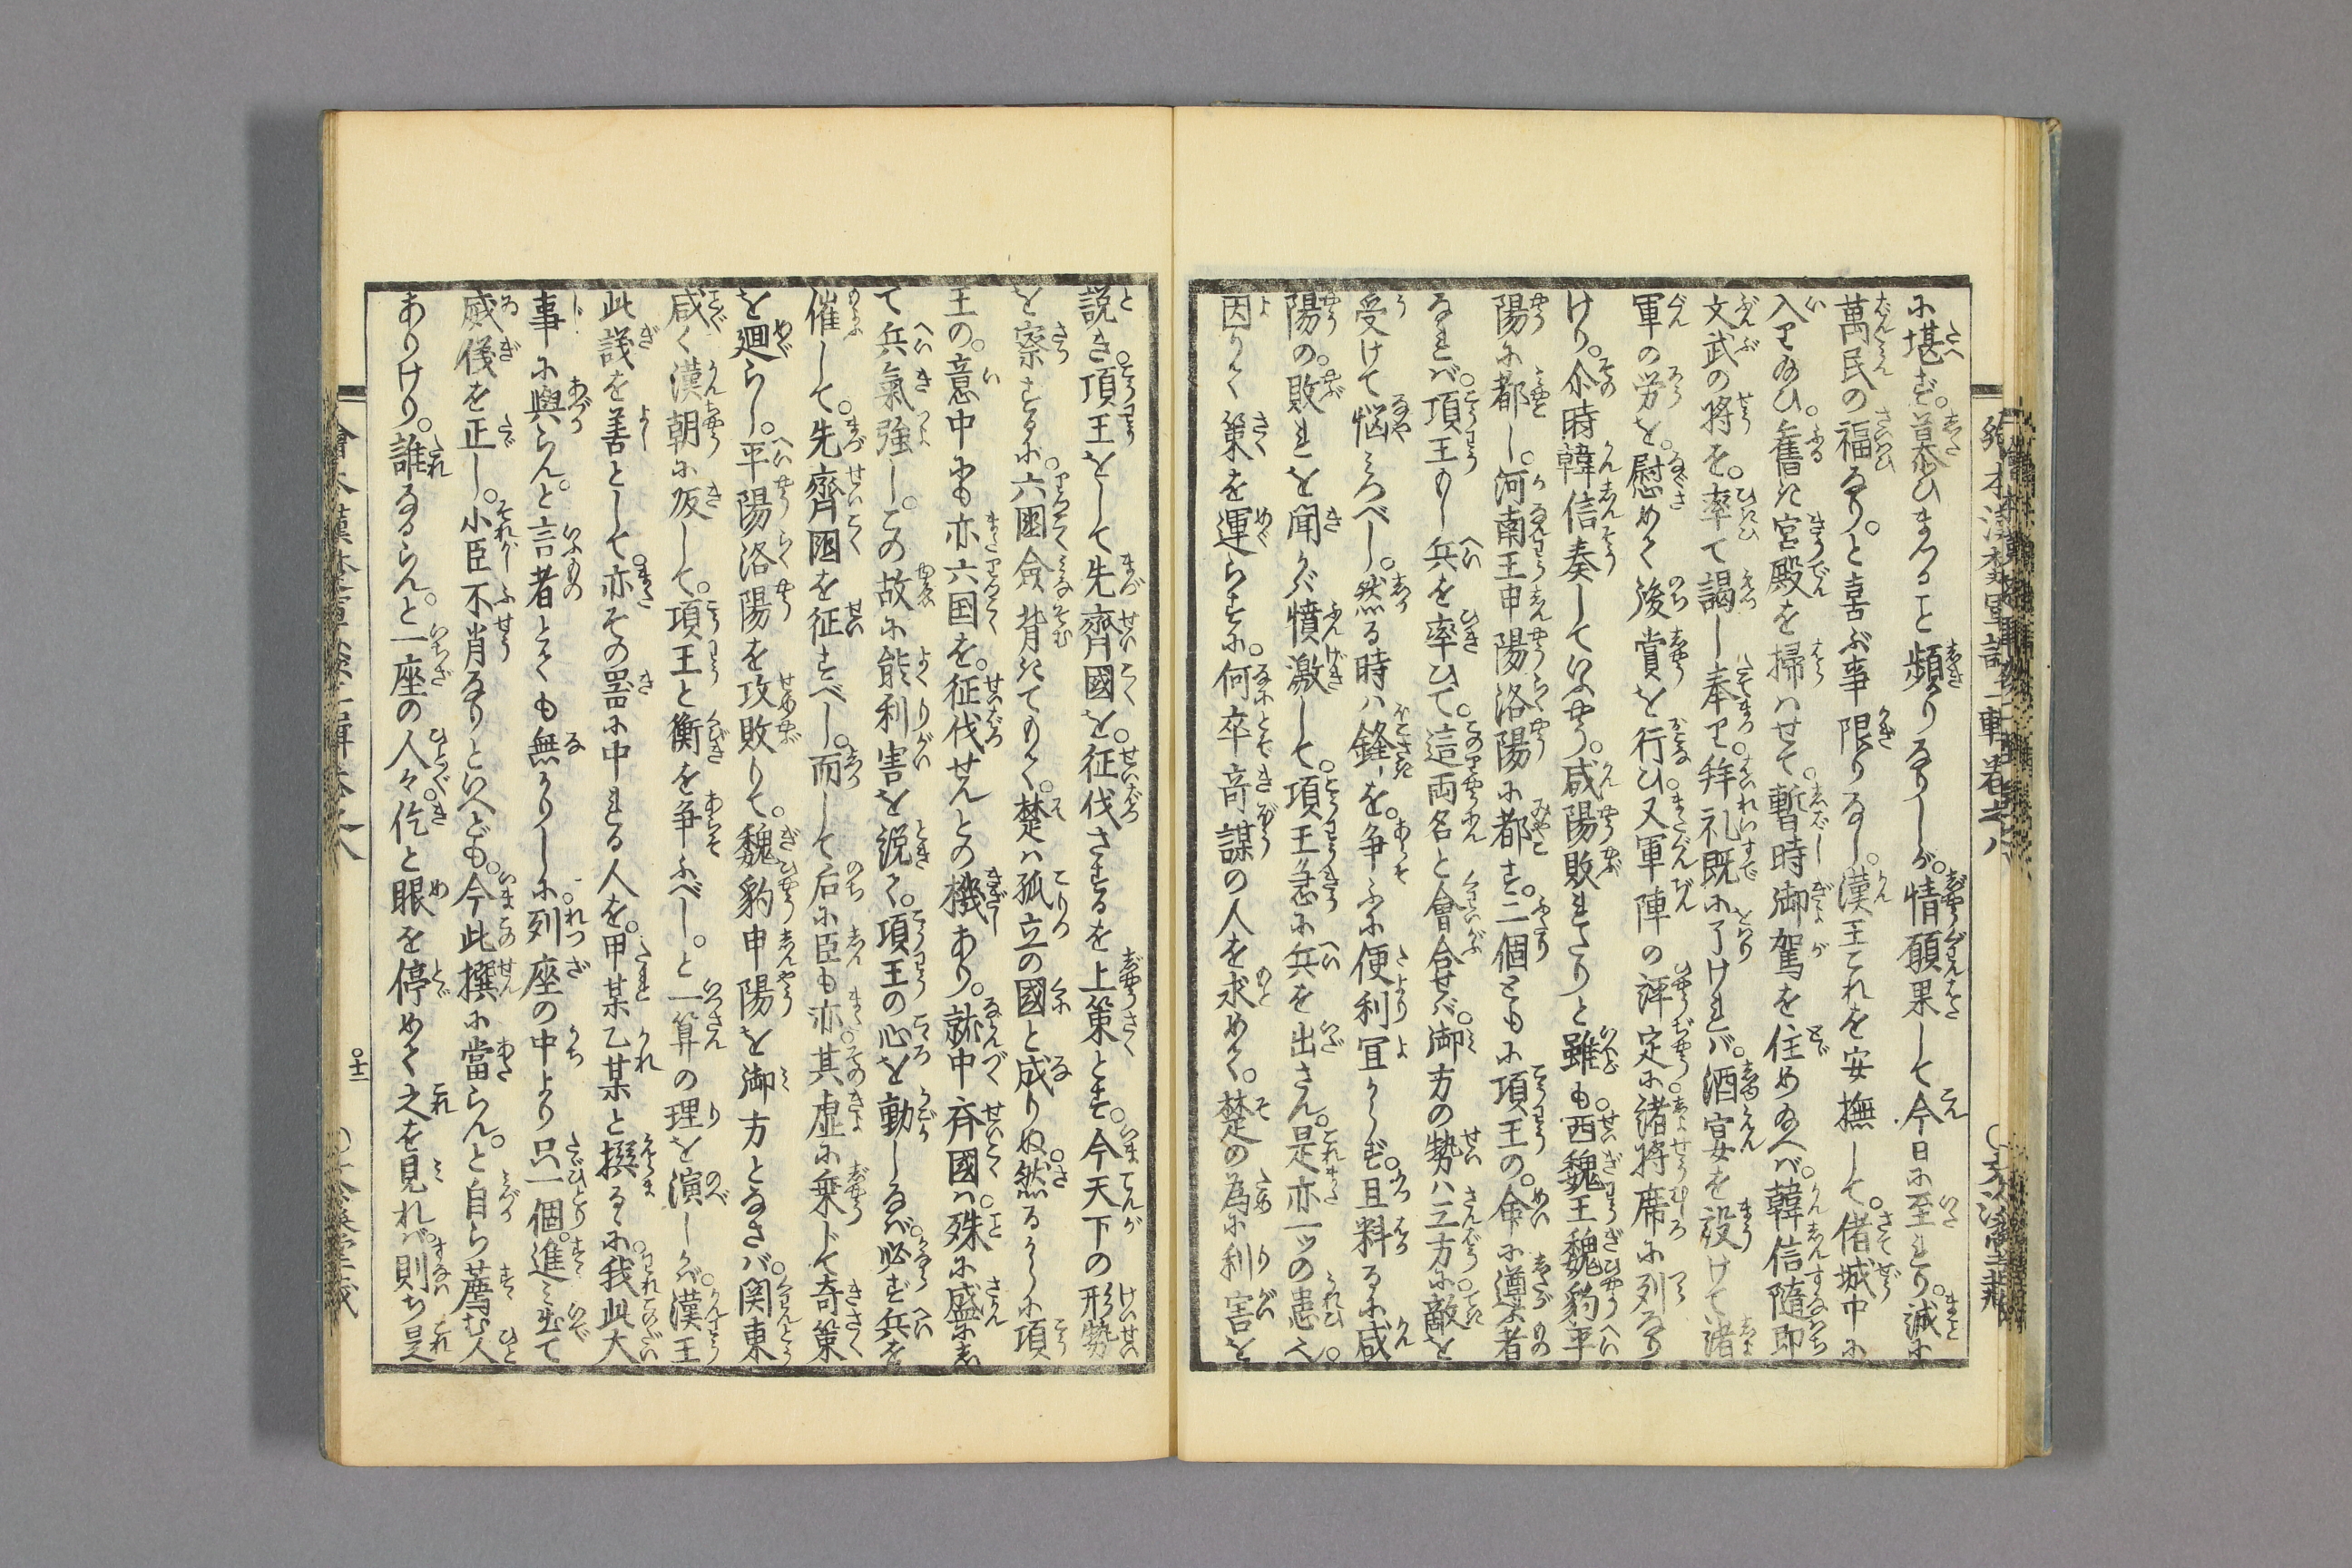 に堪ず。慕ひまつること頻りなりしが。情願果して今日に至れり。誠に
萬民の福なり。と喜ぶ事限りなし。漢王これを安撫して。偖城中に
入り給ひ。舊き宮殿を掃はせて。暫時御駕を住め給へバ。韓信隨即
文武の将を。率て謁し奉り。拜礼既に了けれバ。酒宴を設けて諸
軍の労を。慰めて後賞を行ひ。又軍陣の評定に諸将席に列なり
けり。尒時韓信奏していふやう。咸陽敗れたりと雖も。西魏王魏豹平
陽に都し。河南王申陽洛陽に都す。二個ともに項王の。命に遵ふ者
なれバ。項王もし兵を率ひて。這両名と會合せバ。御方の勢ハ三方に。敵を
受けて悩みつべし。然る時ハ鋒を。争ふに便利冝からず。且料るに咸
陽の。敗れを聞かバ憤激して。項王急に兵を出さん。是亦一ッの患へ。
因りて策を運らすに。何卒奇謀の人を求めて。楚の為に利害を
説き。項王をして先齊國を。征伐さするを上策とす。今天下の形勢
を察するに。六國僉背きてもて。楚ハ孤立の國と成りぬ。然るからに項
王の。意中にも亦六国を。征伐せんとの機あり。就中斉國ハ。殊に盛にし
て兵氣強し。この故に能利害を説て。項王の心を動しなバ。必ず兵を
催して。先齊國を征すべし。而して后に臣も亦。其虚に乗じて奇策
を廻らし。平陽洛陽を攻敗りて。魏豹申陽を御方となさバ。関東
咸く漢朝に皈して。項王と衡を争ふべし。と一算の理を演しかバ。漢王
此議を善として。亦その噐に中れる人を。甲某乙某と撰るゝに。我此大
事に與らん。と言者とても無かりしに。列座の中より只一個。進み出て
威儀を正し。小臣不肖なりといへども。今此撰に當らん。と自ら薦む人
ありけり。誰なるらん。と一座の人々。仡と眼を停めて之を見れバ。則ち是
十二